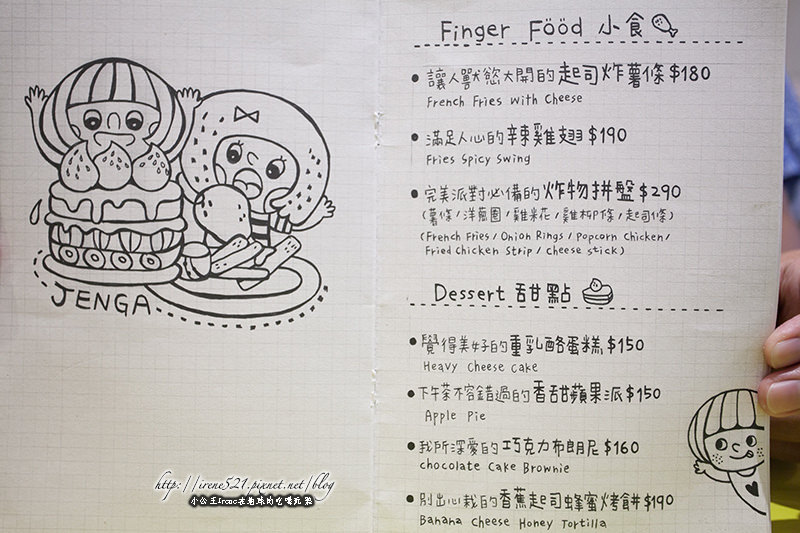 JENGA
Finger Fööd 小食
讓人獸慾大開的起司炸薯條 $180
French Fries with Cheese
滿足人心的辣雞翅 $190
Fries Spicy Swing
完美派對必備的炸物拼盤 $290
(薯條/洋蔥圈/雞米花/雞柳條/起司條)
(French Fries / Onion Rings / Popcorn Chicken /
Fried Chicken Strip / Cheese stick)
Dessert 甜點
覺得美好的重乳酪蛋糕 $150
Heavy Cheese Cake
下午茶不容錯過的香甜蘋果派 $150
Apple Pie
我所深愛的巧克力布朗尼 $160
chocolate Cake Brownie
別出心栽的香蕉起司蜂蜜烤餅 $190
Banana Cheese Honey Tortilla
http://irene521.pixnet.net/blog
小公主Irene在地球的吃喝玩樂